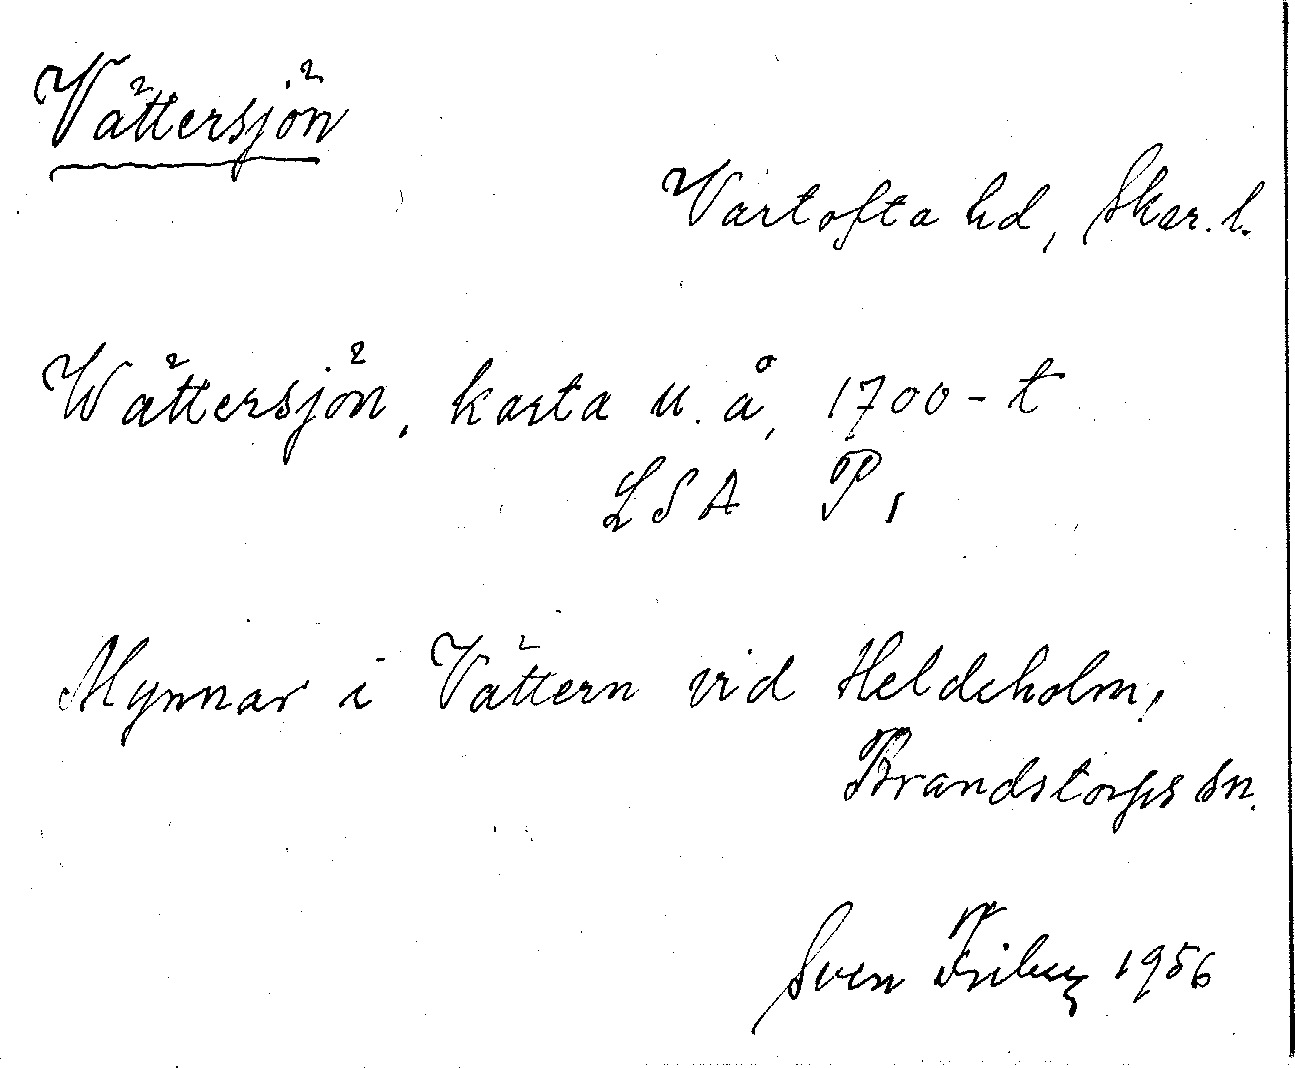 Vättersjön
Vartofta hd, Skar. l.
Wättersjön, karta u. å, 1700-t
LSA P1
Mynnar i Vättern vid Heldeholm,
Brandstorps sn.
Sven Friberg 1956